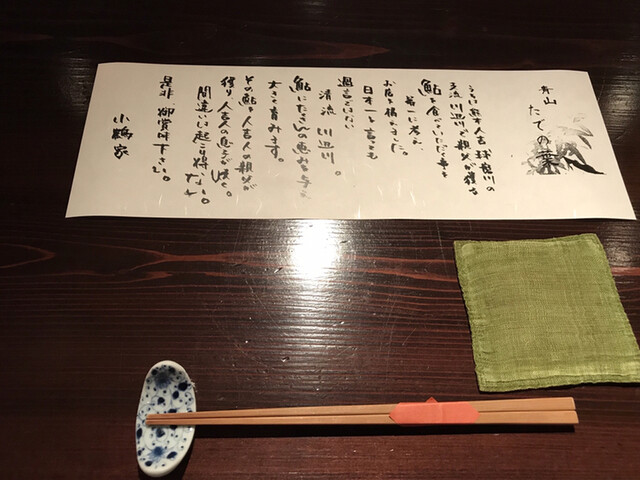 青山
たでの葉
うちは熊本人吉 球磨川の
支流 川辺川で親父が獲る
鮎を食べていただく事を
第一に考え、
お店を構えました。
日本一と言っても
過言ではない
清流 川辺川。
鮎にたくさんの恵みを与え
大きく育みます。
その鮎を人吉人の親父が
獲り 人吉人の息子が焼く。
間違いは起こり得ない。
是非、御賞味下さい。
小鶴家